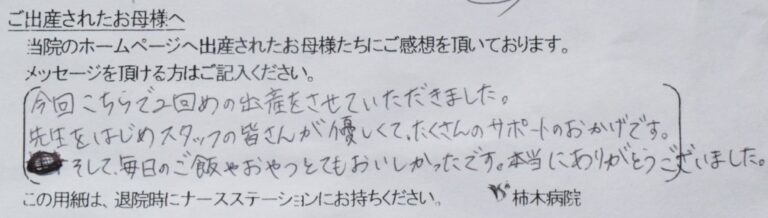 ご出産されたお母様へ
当院のホームページへ出産されたお母様たちにご感想を頂いております。
メッセージを頂ける方はご記入ください。
今回こちらで2回めの出産をさせていただきました。
先生をはじめスタッフの皆さんが優しくて、たくさんのサポートのおかげです。
そして、毎日のご飯やおやつとてもおいしかったです。本当にありがとうございました。
この用紙は、退院時にナースステーションにお持ちください。 柿木病院